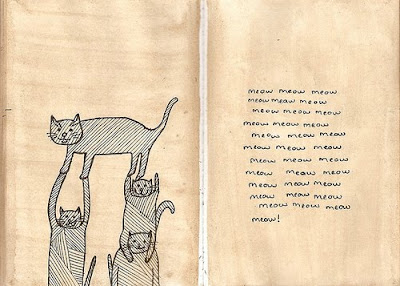 meow meow meow
meow meow meow
meow meow meow
meow meow meow
meow meow meow
meow meow meow
meow meow meow
meow meow meow
meow meow meow
meow meow meow
meow meow meow
meow!